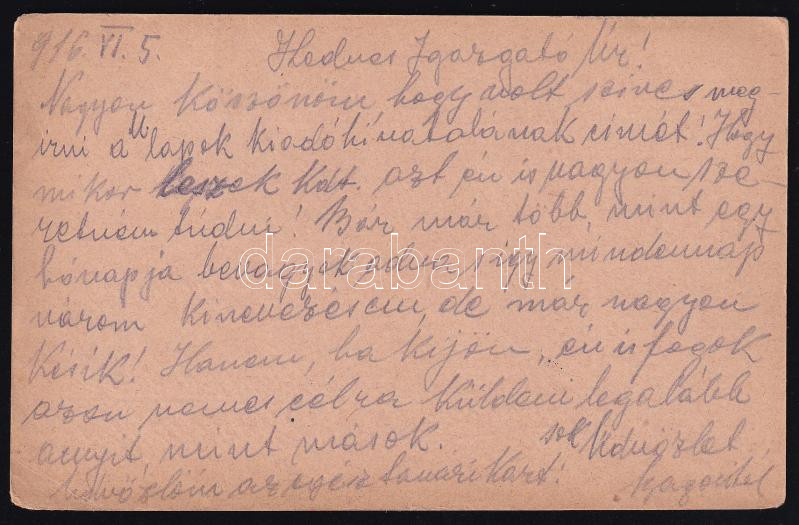 916. VI. 5.
Kedves Igazgató Úr!
Nagyon köszönöm hogy volt szíves meg-
irni a lapok kiadóhivatalának címét! Hogy
mikor leszek Kdt. azt én is nagyon sze-
retném tudni! Bár már több, mint egy
hónapja bevagyok adva, s így mindennap
várom kinevezésem, de már nagyon
késik! Hanem, ha kijön, én is fogok
azon nemes célra küldeni legalább
annyit mint mások. sok üdvözlet
üdvözlöm az egész tanári kart!
darabanth